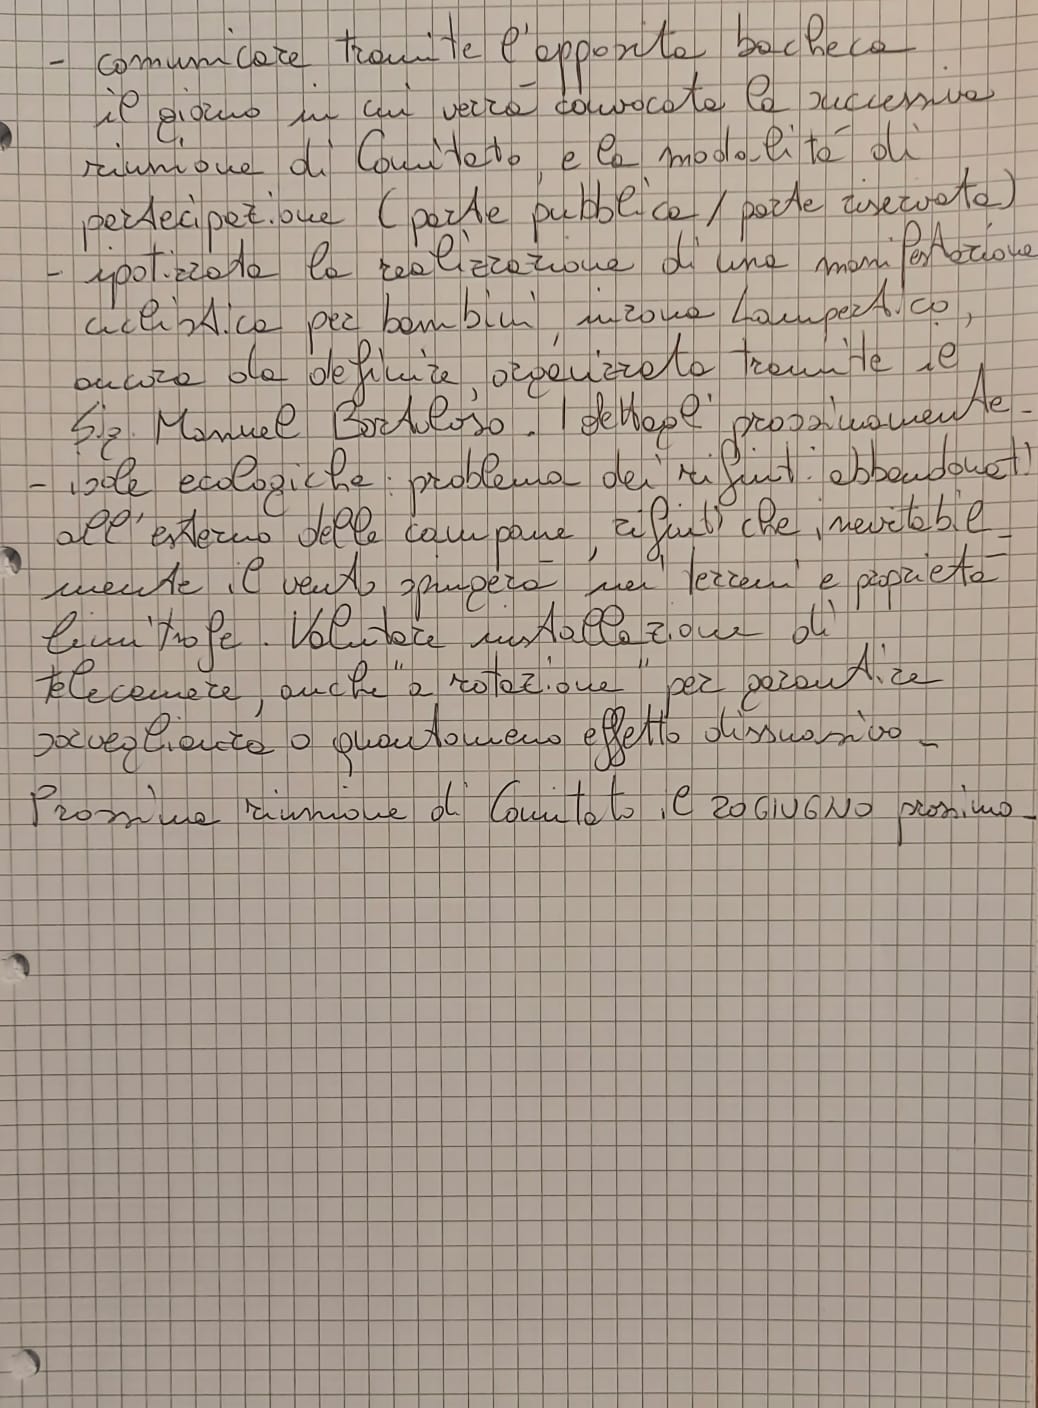 - comunicare tramite l'apposita bacheca
il giorno in cui verrà convocata la successiva
riunione di Comitato, e la modalità di
partecipazione (parte pubblica / parte riservata)
- ipotizzata la realizzazione di una manifestazione
ciclistica per bambini, in zona Lampertico,
ancora da definire, organizzata tramite il
Sig. Manuel Bortoloso. I dettagli prossimamente.
- isole ecologiche: problema dei rifiuti abbandonati
all'esterno delle campane, rifiuti che inevitabil-
mente il vento spingerà nei terreni e proprietà
limitrofe. Valutare installazione di
telecamere, anche "a rotazione" per garantire
sorveglianza o quantomeno effetto dissuasivo.
Prossima riunione di Comitato il 20 GIUGNO prossimo.